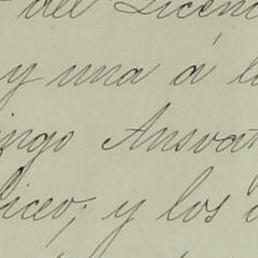 del Licenc
y una á l
ingo Ansvat
liceo; y los